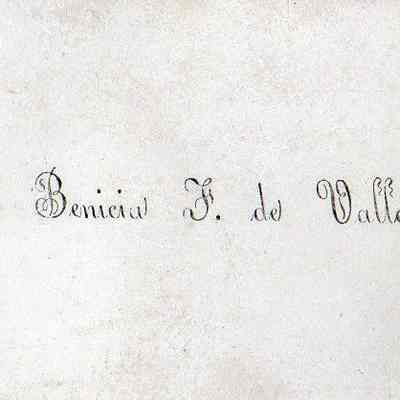 Benicia F. de Valle